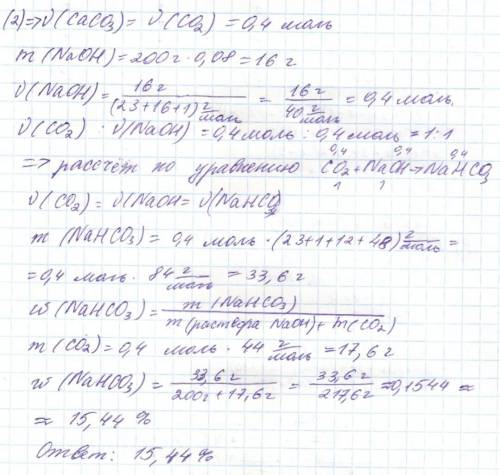 (2)=>ν(CaCO₃)=ν(CO₂)=0,4 моль
m(NaOH)=200г·0,08=16г
ν(NaOH)=16г/(23+16+1)г/моль = 16г/40г/моль = 0,4 моль.
ν(CO₂) : ν(NaOH)=0,4моль : 0,4моль=1:1
0,4 0,4 0,4
=> рассчёт по уравнению CO₂+NaOH→NaHCO₃
1 1
ν(CO₂)=ν(NaOH=ν(NaHCO₃)
m(NaHCO₃)= 0,4 моль·(23+1+12+48)г/моль=
=0,4 моль·84г/моль=33,6г
w(NaHCO₃)=m(NaHCO₃)/m(раствора NaOH)+m(CO₂)
m(CO₂)=0,4 моль·44г/моль=17,6г
w(NaHCO₃)=33,6г/200г+17,6г=33,6г/217,6г=0,1544≈
≈ 15,44 %
Ответ: 15,44%